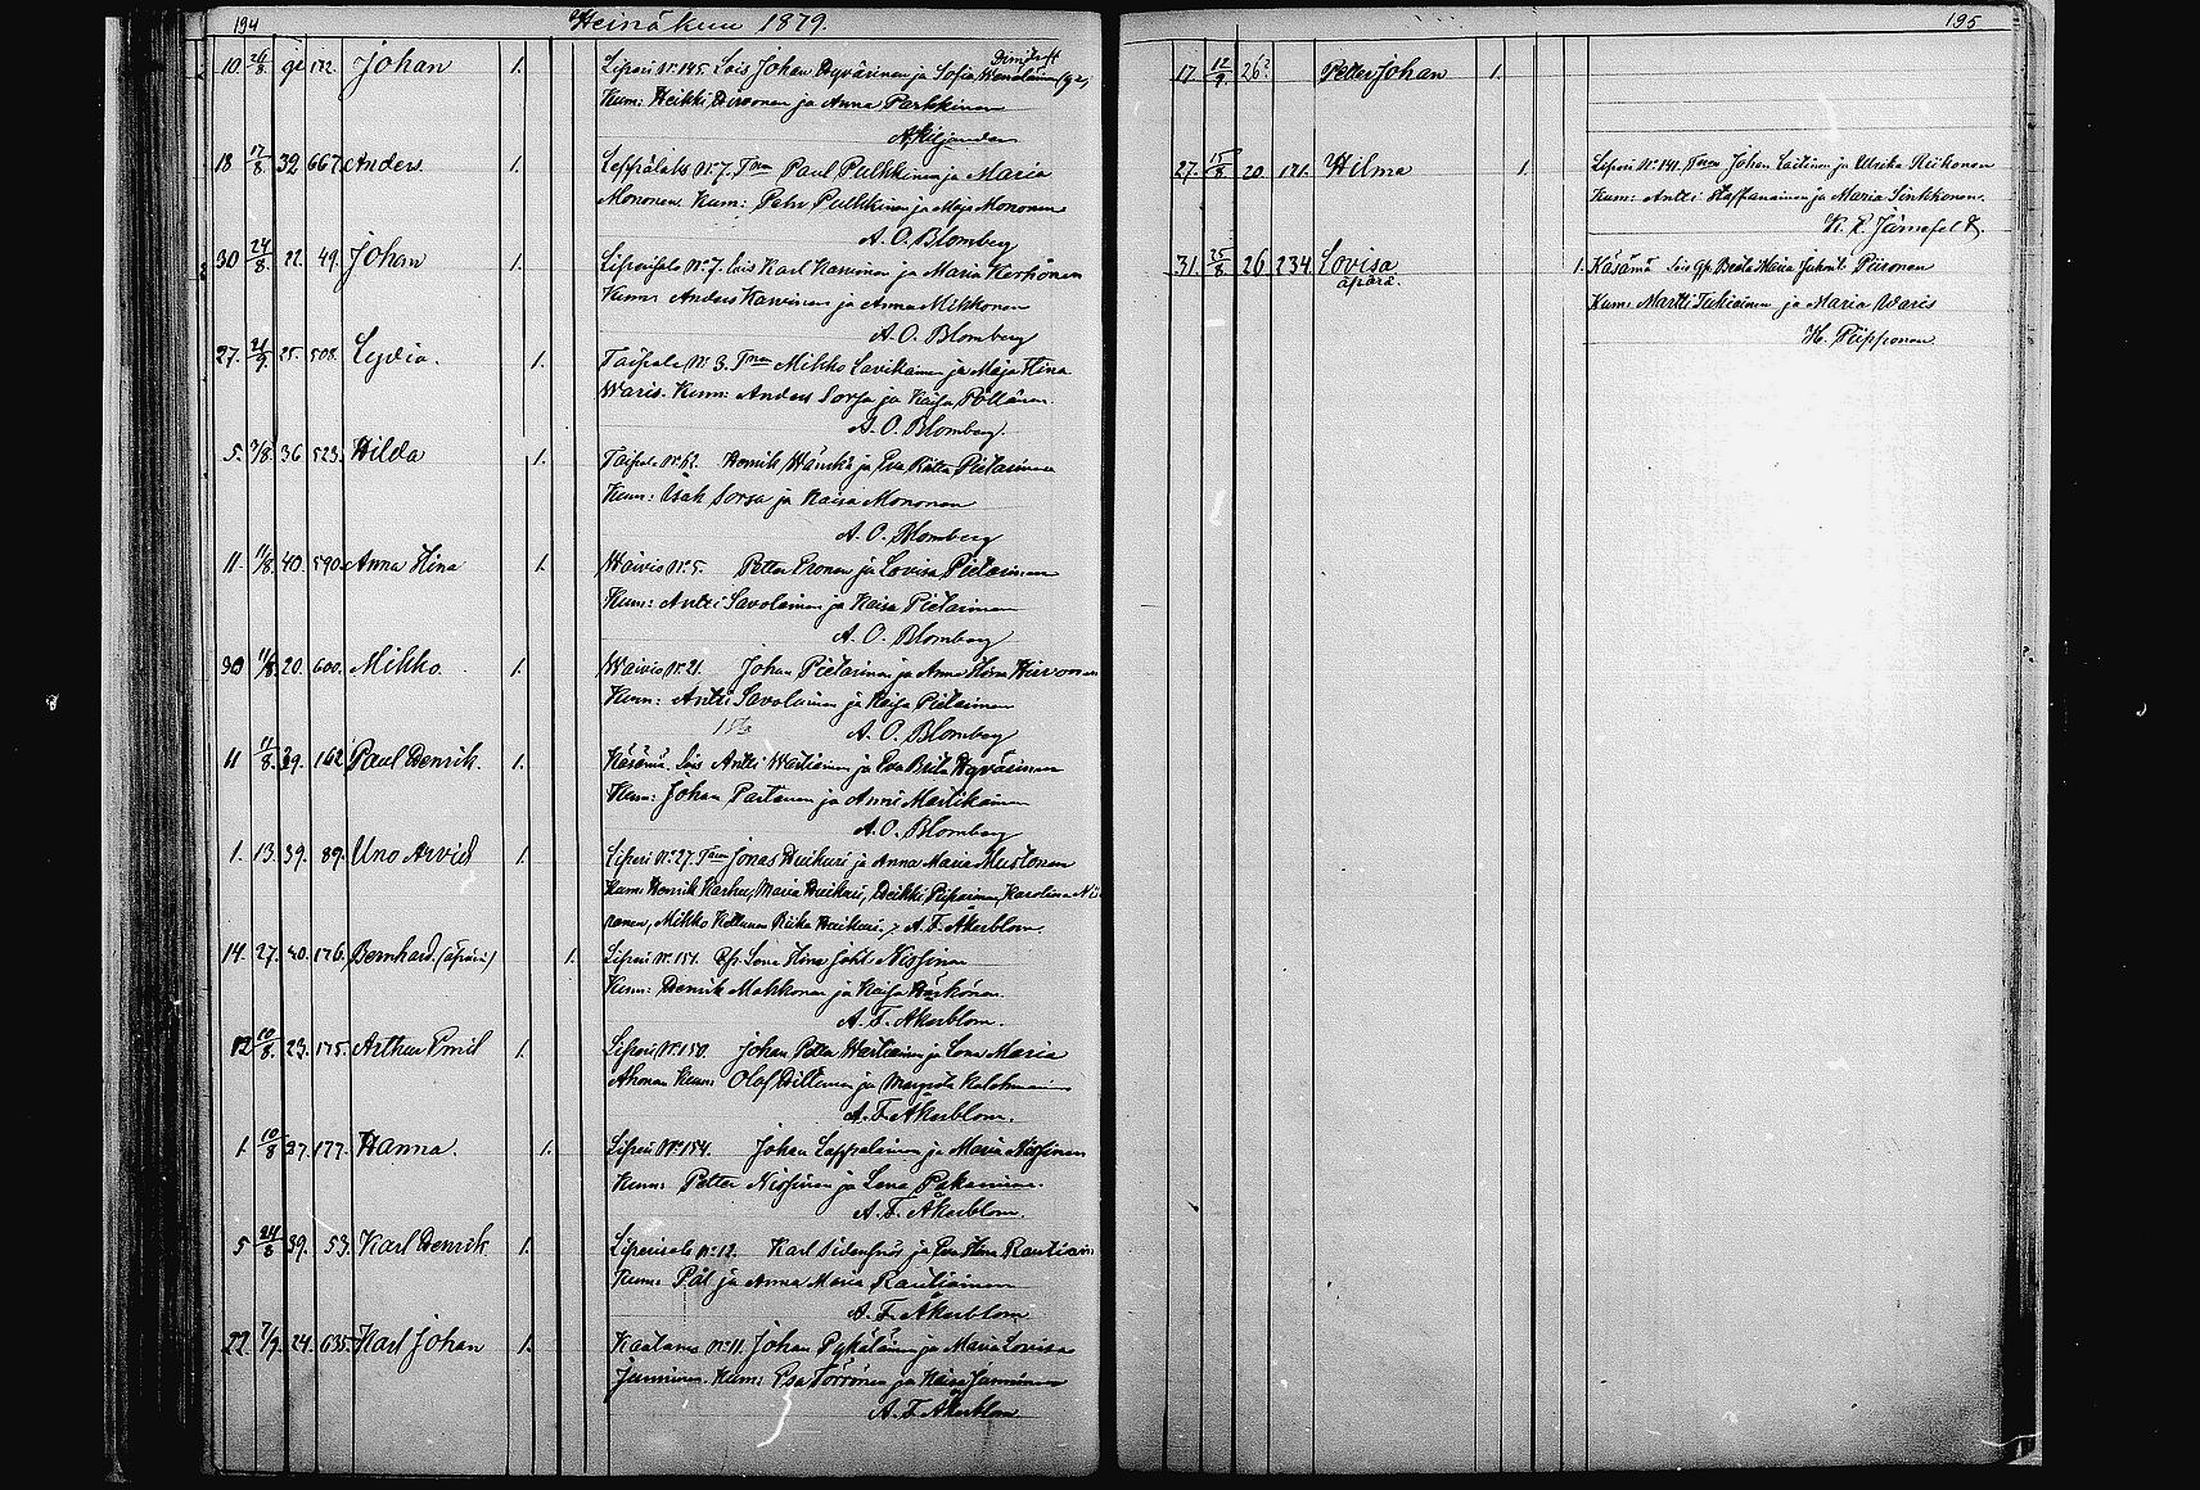 194 Heinäkuu 1879.
10. 26/8. 172. Johan 1. Liperi N:o 145. Lois Johan Hyvärinen ja Sofia
Kum: Heikki Hirvonen ja Anna Parkkinen
18 17/8. 39 667. Anders. 1. Leppälaks N:o 7. Tnen Paul Pulkkinen ja Maria
Mononen. Kum: Petr Pulkkinen ja Maja Mononen
A. O. Blomberg
30 24/8. 22. 49. Johan 1. Liperisalo N:o 7. Lois Karl Karvinen ja Maria Kerhonen
Kum: Anders Karvinen ja Anna Mikkonen
A. O. Blomberg
27. 21/9. 25. 508. Lydia. 1. Taipale N:o 3. Tnen Mikko Lavikainen ja Maja Stina
Waris. Kum: Anders Sorsa ja Kaisa Pöllänen.
A. O. Blomberg.
5. 3/8. 36 523. Hilda 1. Taipale N:o 62. Henrik Wänskä ja Eva Brita Pietarinen
Kum: Isak Sorsa ja Kaisa Mononen
A. O. Blomberg
11. 11/8. 40. 590. Anna Stina 1. Waivio N:o 5. Petter Eronen ja Lovisa Pietarinen
Kum: Antti Savolainen ja Kaisa Pietarinen
A. O. Blomberg
30 11/8. 20. 600. Mikko. 1. Waivio N:o 21. Johan Pietarinen ja Anna Stina Hirvonen
Kum: Antti Savolainen ja Kaisa Pietarinen
A. O. Blomberg
11 11/8. 29. 162 Paul Henrik. 1. Käsämä. Lois Antti Wartiainen ja Eva Brita Hyvärinen
Kum: Johan Partanen ja Anni Martikainen
A. O. Blomberg
1. 13. 39. 89. Uno Arvid 1. Liperi N:o 27. Tnen Jonas Huikuri ja Anna Maria Mustonen
Kum: Henrik Karhu, Maria Huikuri, Heikki Piipainen, Karolina Ni
ronen, Mikko Kettunen Riika Huikuri. A. F. Åkerblom.
14. 27. 40. 176. Bernhard. (äpärä) 1. Liperi N:o 151. Gp. Lena Stina Joht: Nissinen
Kum: Henrik Mahkonen ja Kaisa Härkönen.
A. F. Åkerblom.
12 10/8. 23. 175. Arthur Emil 1. Liperi N:o 150. Johan Petter Wartiainen ja Lena Maria
Ahonen Kum: Olof Hiltunen ja Margreta Kalehmainen
A. F. Åkerblom.
1. 10/8 27. 177. Hanna. 1. Liperi N:o 154. Johan Lappalainen ja Maria Nissinen
Kum: Petter Nissinen ja Lena Pakarinen.
A. F. Åkerblom.
5 24/8 39. 53. Karl Henrik 1. Liperisalo N:o 12. Karl Sidensnös ja Eva Stina Rautiain
Kum: Pål ja Anna Maria Rautiainen
A. F. Åkerblom
22. 7/9. 24. 635. Karl Johan 1. Kaatamo N:o 11. Johan Pykäläinen ja Maria Lovisa
Junninen. Kum: Esa Törrönen ja Kaisa Junninen
A. F. Åkerblom
195
17. 12/9. 26? Petter Johan 1.
27. 15/8. 20. 121. Hilma 1. Liperi N:o 141. Tnen Johan Laitinen ja Ulrika Riikonen
Kum: Antti Staffanainen ja Maria Sinkkonen.
K. E. Järnefelt.
31. 25/8 26 234. Lovisa 1. Käsämä Lois Gp. Beata Maria Juhant: Piironen
äpärä.
Kum: Martti Tukiainen ja Maria Waris
H. Piipponen